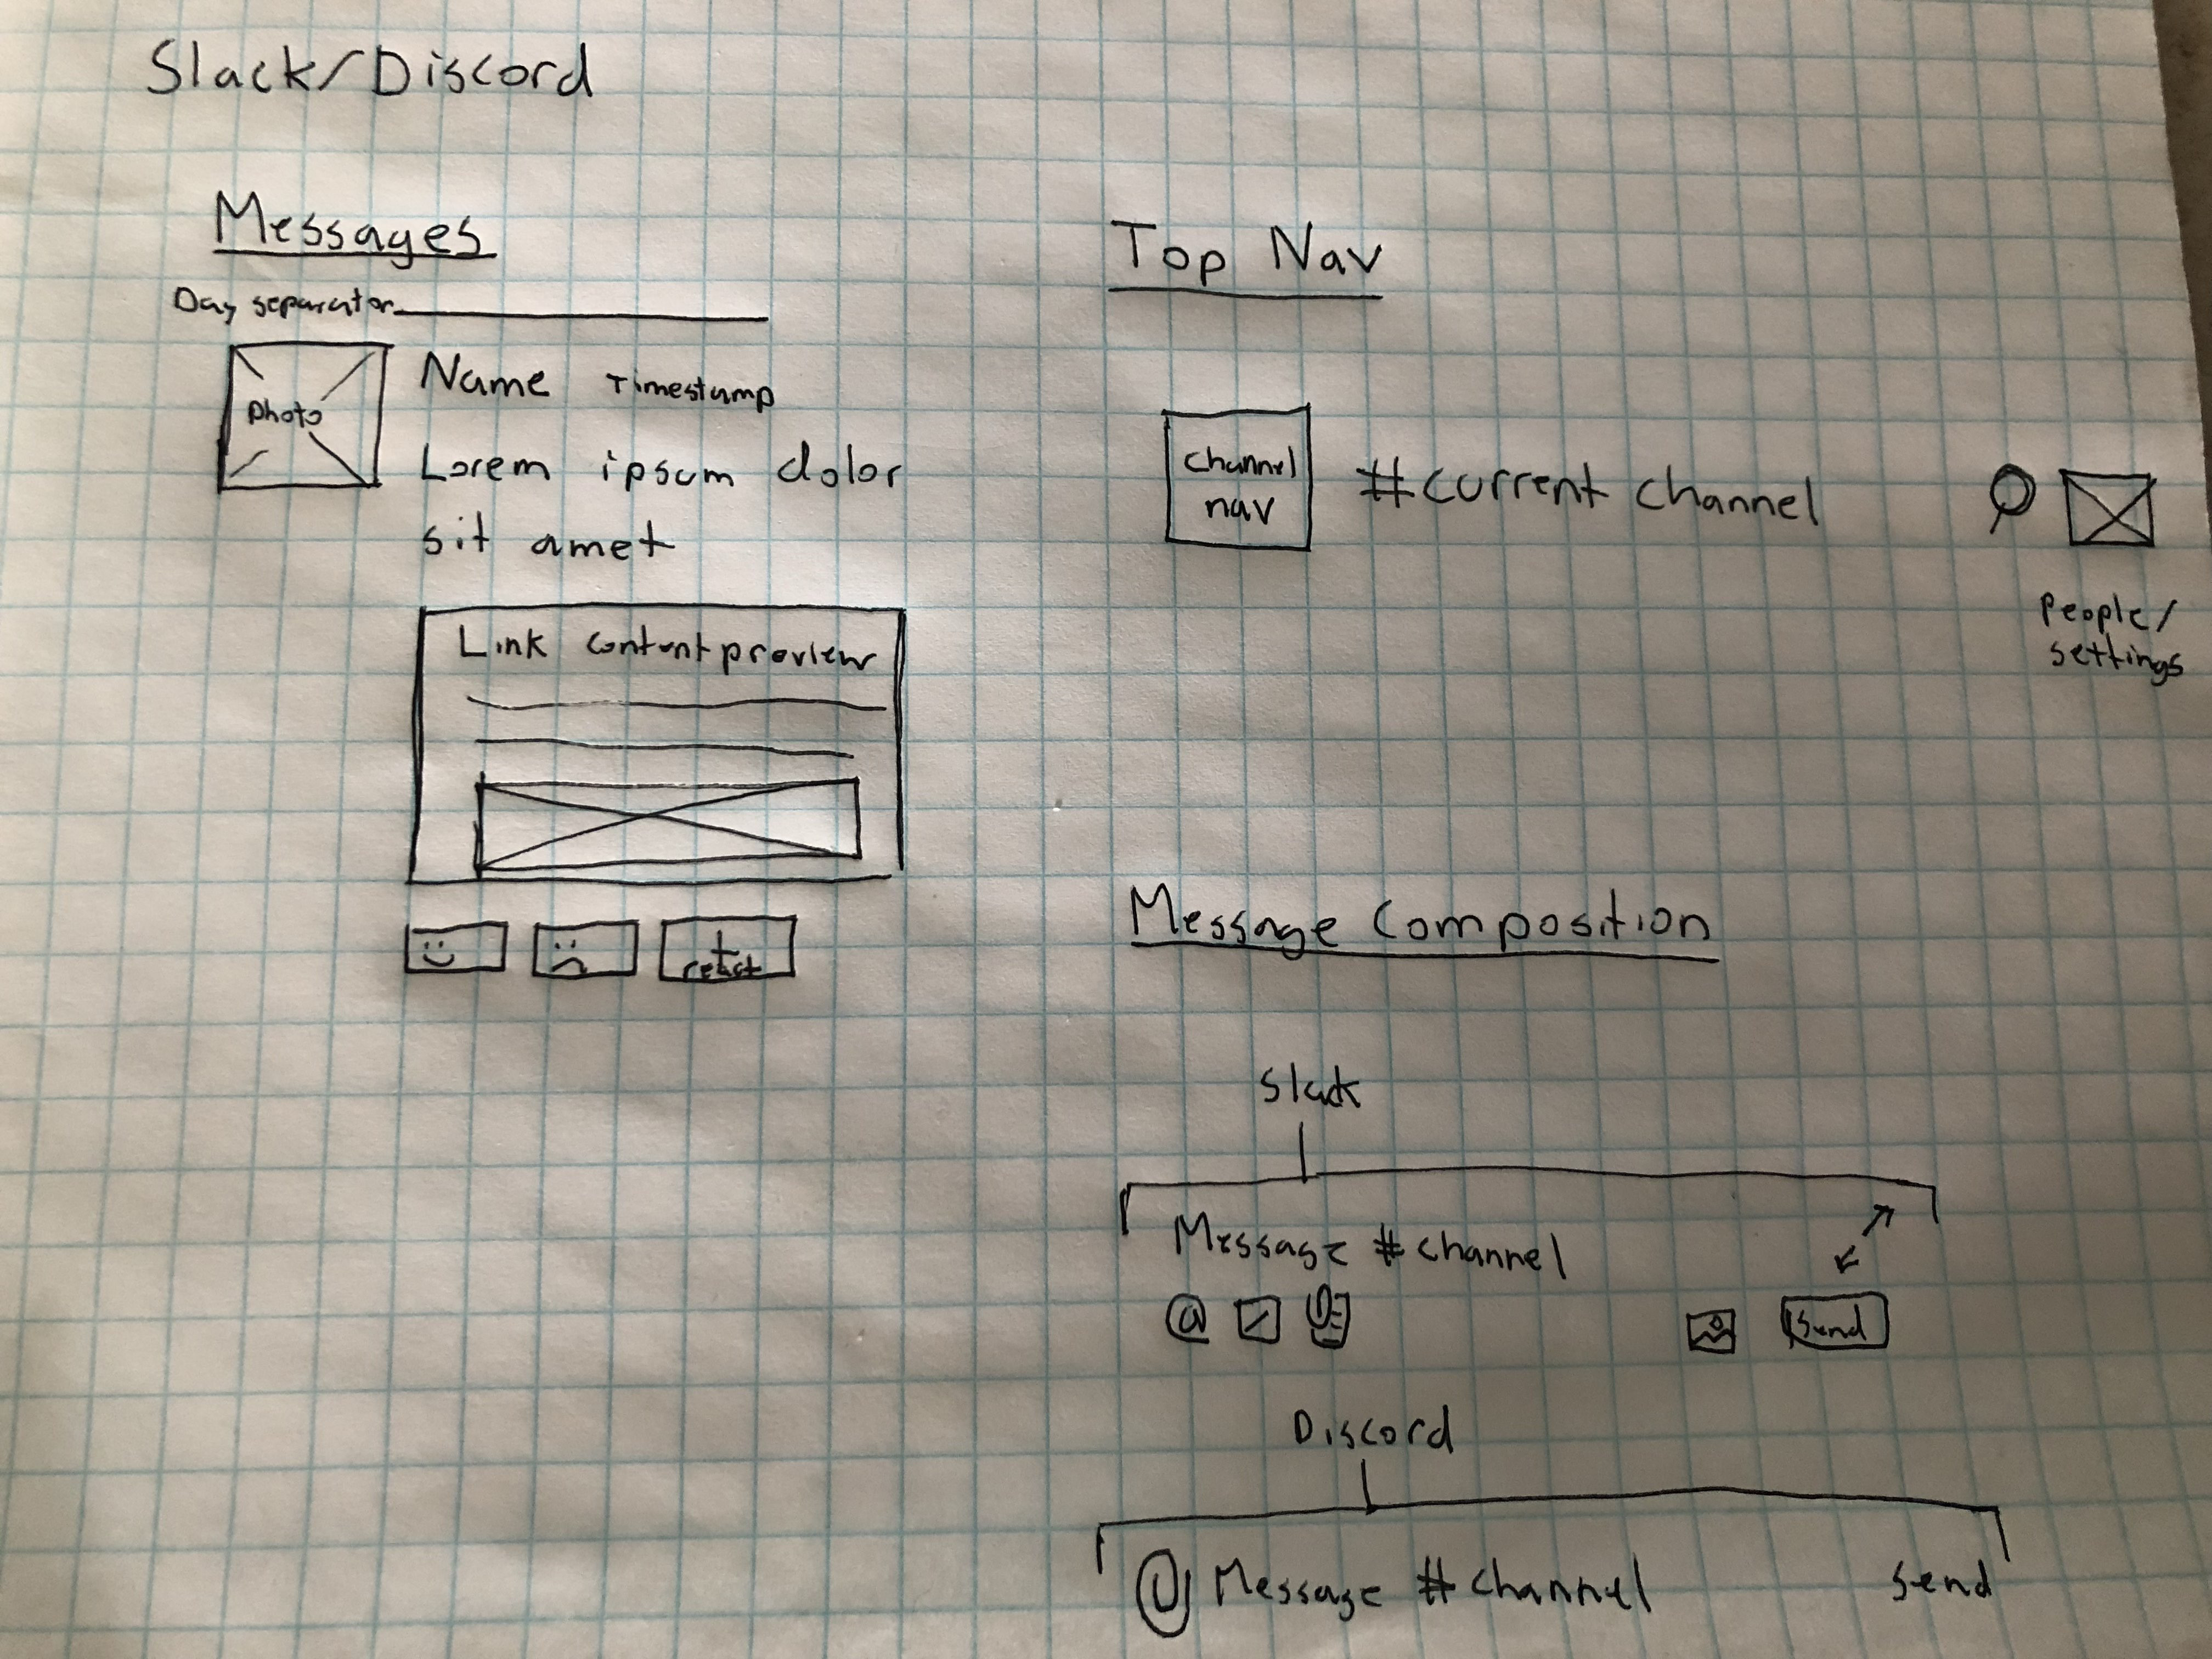 Slack/Discord
Messages
Day separator
photo
Name Timestamp
Lorem ipsum dolor
sit amet
Link content preview
+
react
Top Nav
Channel
nav
#current channel
People/
settings
Message Composition
Slack
Message #channel
@ Send
Discord
Message #channel Send